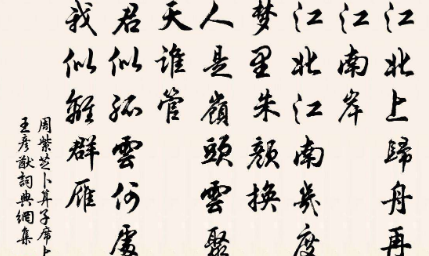 江北上歸舟再
江南岸
江北江南幾度
梦里朱顏換
人是嶺頭雲聚
天誰管
君似孤雲何處
我似離群雁
周紫芝卜算子席上
王彦猷詞典網集